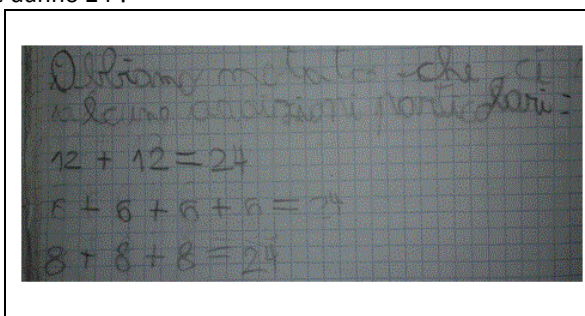 danno 24 .
Abbiamo notato che ci
alcune addizioni particolari:
12 + 12 = 24
6 + 6 + 6 + 6 = 24
8 + 8 + 8 = 24